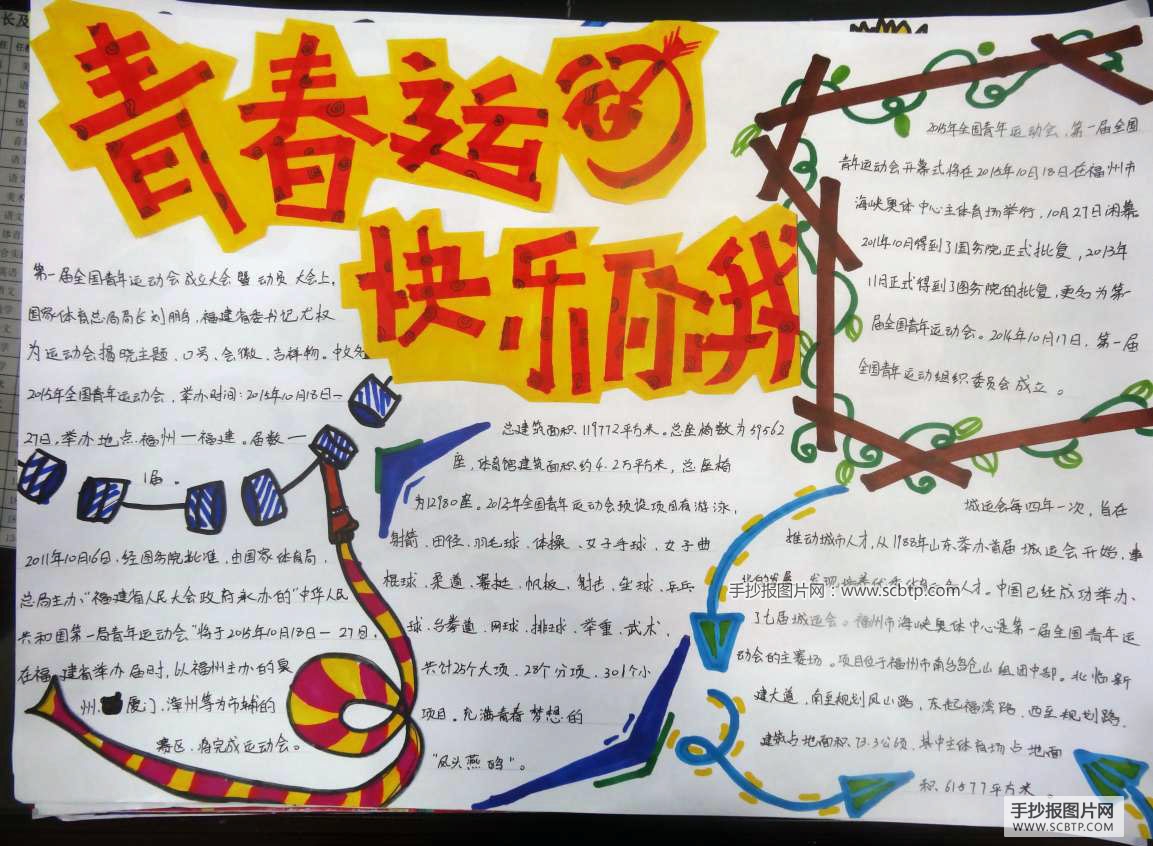 青春运
快乐你我
第一届全国青年运动会成立大会暨动员大会上,
国家体育总局局长刘鹏,福建省委书记尤权
为运动会揭晓主题、口号、会徽、吉祥物。中文名
2015年全国青年运动会,举办时间:2015年10月18日-
27日,举办地点福州一福建。届数一
1届。
2011年10月6日,经国务院批准,由国家体育局,
总局主办,“福建省人民大会政府承办的“中华人民
共和国第一届青年运动会“将于2015年10月18日-27日,
在福建省举办届时,以福州主办的泉
州、厦门、漳州等为市辅的
赛区,将完成运动会。
总建筑面积119772平方米。总座椅数为59562
座,体育馆建筑面积约4.2万平方米,总座椅
为12980座。2013年全国青年运动会预设项目有游泳、
射箭、田径、羽毛球、体操、女子手球、女子曲
棍球、柔道、赛艇、帆板、射击、垒球、乒乓
球、台拳道、网球、排球、举重、武术,
共计25个大项、28个分项,301个小
项目。充满青春梦想的
“凤头燕鸥”。
2015年全国青年运动会,第一届全国
青年运动会开幕式将在2015年10月18日在福州市
海峡奥体中心主体育场举行,10月27日闭幕
2011年10月得到了国务院正式批复,2013年
11月正式得到了国务院的批复,更名为第一
届全国青年运动会。2014年10月17日,第一届
全国青年运动组织委员会成立。
城运会每四年一次,旨在
推动城市人才,从1988年山东举办首届城运会开始,
人才。中国已经成功举办、
了七届城运会。福州市海峡奥体中心是第一届全国青年运
动会的主赛场。项目位于福州市南台岛仓山组团中部。北临新
建大道,南至规划凤山路,东起福湾路,西至规划路.
建筑占地面积73.3公顷,其中主体育场占地面
积61577平方米。
手抄报图片网:www.scbtp.com
手抄报图片网
WWW.SCBTP.COM